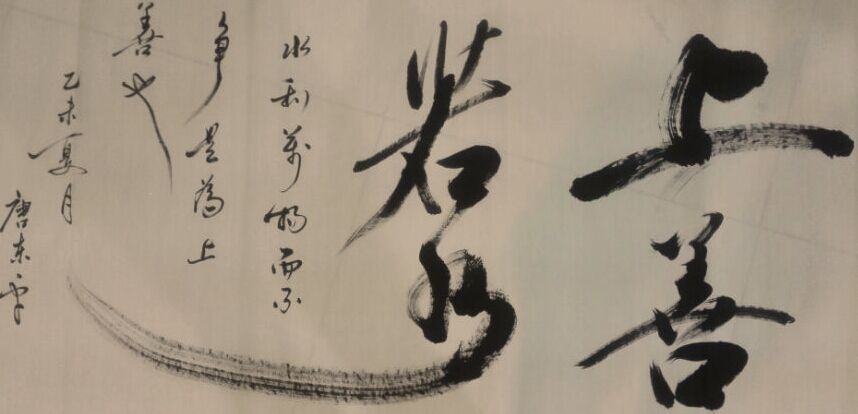 上善
若水
水利萬物而不
争是為上
善也
乙未夏月
唐東平